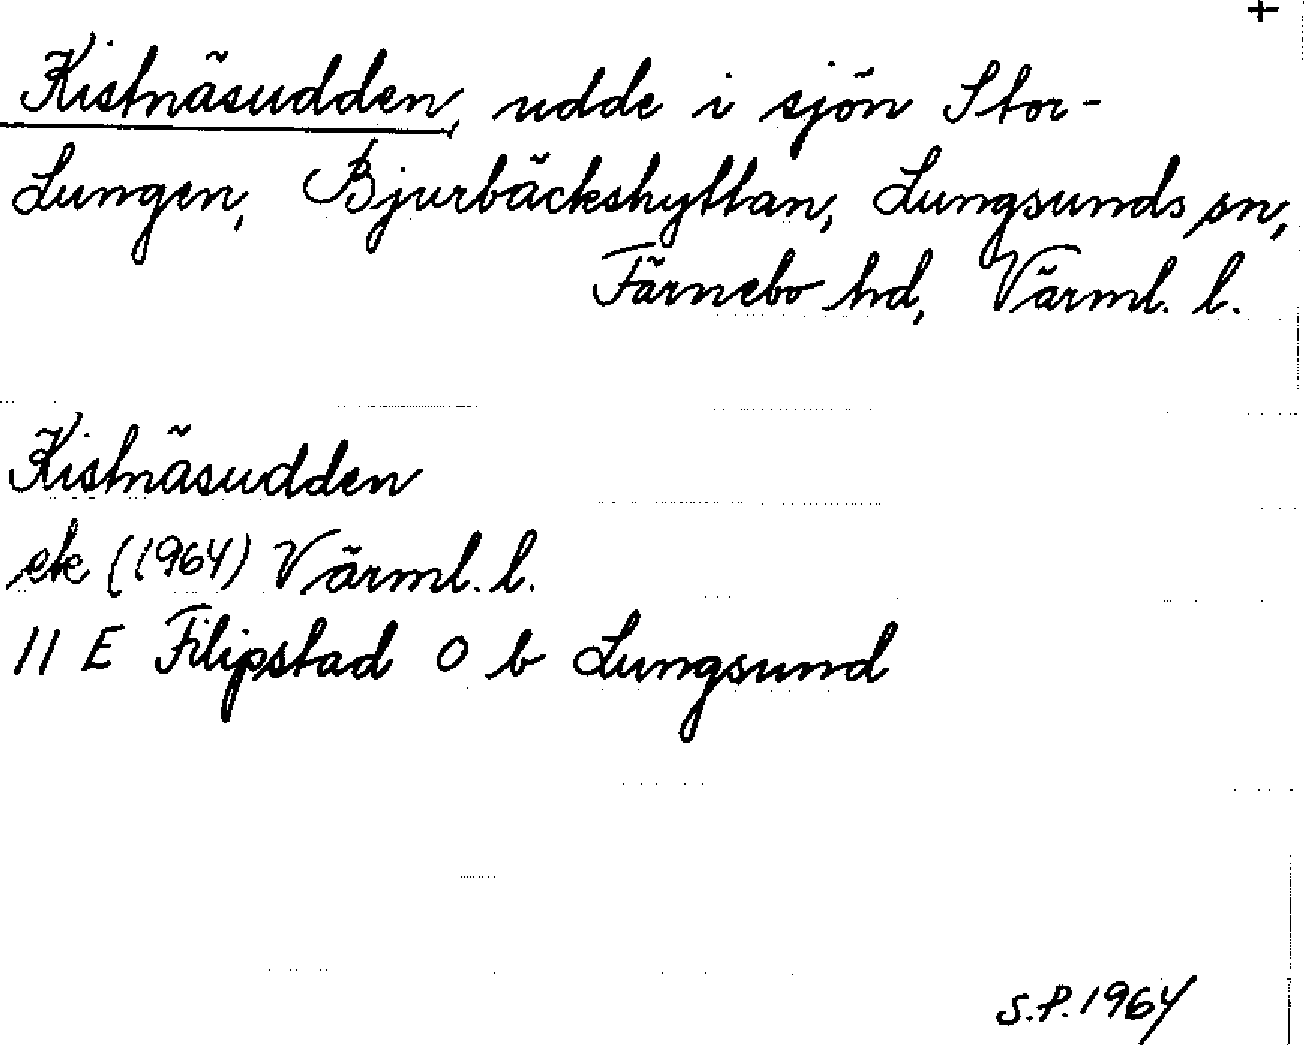 +
Kistnäsudden, udde i sjön Stor-
Lungen, Bjurbäckshyttan, Lungsunds sn,
Färnebo hd, Värml. l.
Kistnäsudden
ek (1964) Värml. l.
11 E Filipstad 0 b Lungsund
S.P. 1964